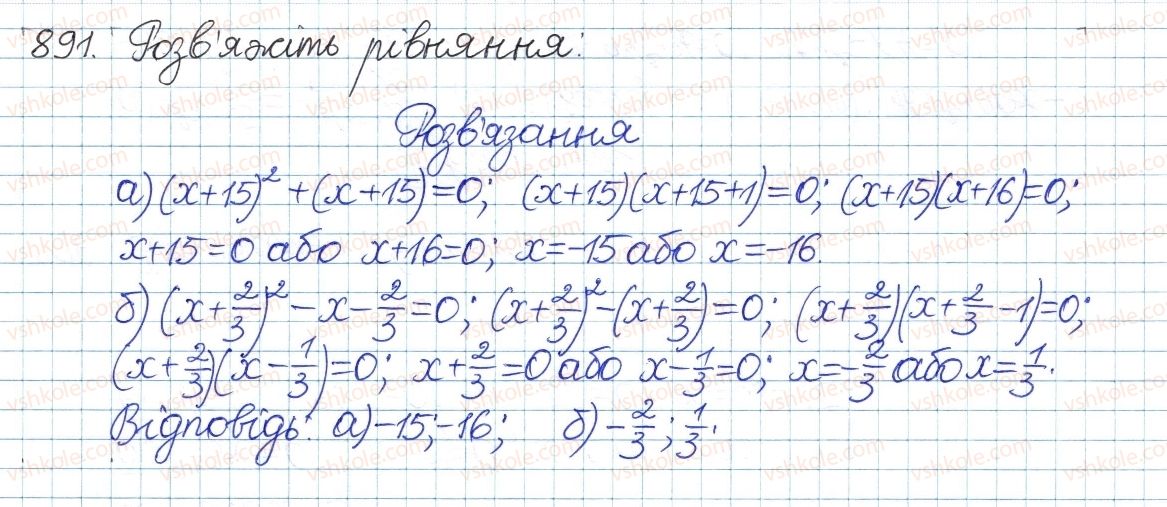 891. Розв'яжіть рівняння:
Розв'язання
а) (x+15)² + (x+15)=0; (x+15)(x+15+1)=0; (x+15)(x+16)=0;
x+15=0 або x+16=0; x=-15 або x=-16.
б) (x+2/3)² - x - 2/3 = 0; (x+2/3)² - (x+2/3)=0; (x+2/3)(x+2/3-1)=0;
(x+2/3)(x-1/3)=0; x+2/3=0 або x-1/3=0; x=-2/3 або x=1/3.
Відповідь: а) -15; -16; б) -2/3; 1/3.